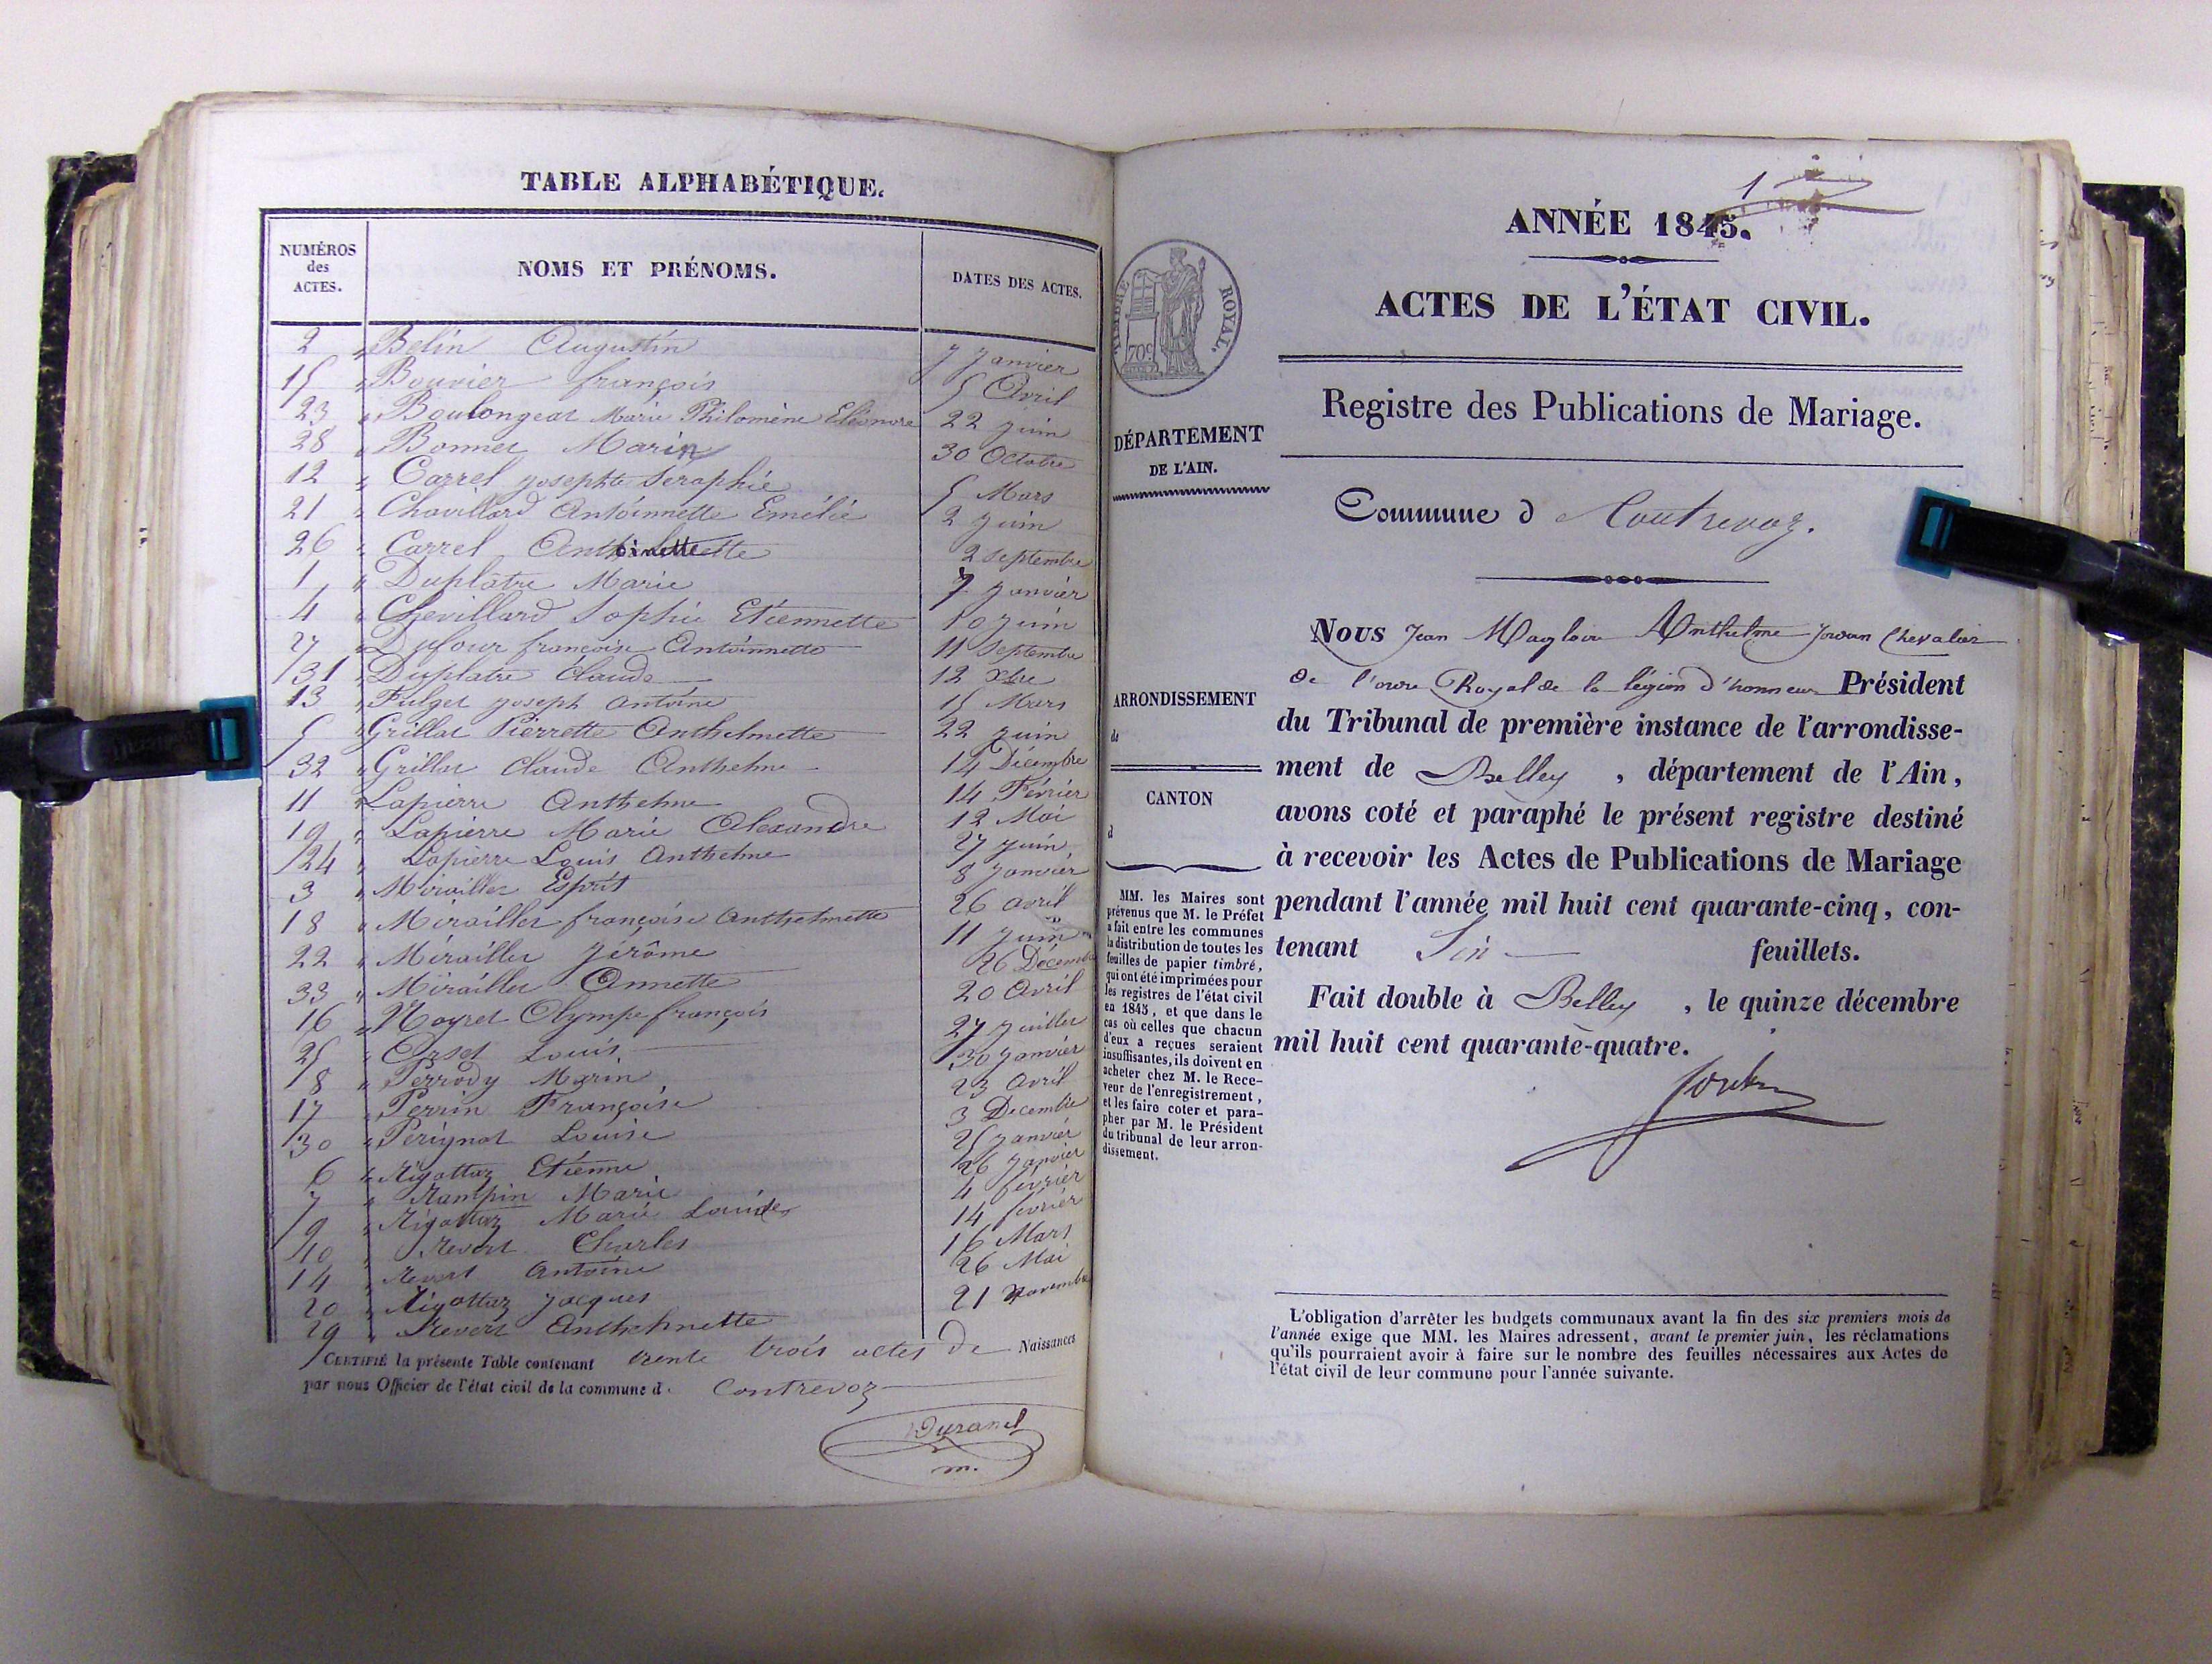 TABLE ALPHABÉTIQUE.
NUMÉROS des ACTES. NOMS ET PRÉNOMS. DATES DES ACTES.
2 " Belin Augustin 7 Janvier
15 " Bouvier françois 5 Avril
23 " Boulongeat Marie Philomène Eléonore 22 Juin
28 " Bonnet Marin 30 Octobre
12 " Carrel Josephte Séraphie 5 Mars
21 " Chavillard Antoinnette Emélie 2 Juin
26 " Carrel 2 Septembre
1 " Duplâtre Marie 7 Janvier
4 " Chevillard Sophie Etiennette 10 Juin
27 " Dufour françoise Antoinnette 11 Septembre
31 " Duplatre Claude 12 Xbre
13 " Fulget Joseph Antoine 15 Mars
5 " Grillat Pierrette Anthelmette 22 Juin
32 " Grillat Claude Anthelme 14 Décembre
11 " Lapierre Anthelme 14 Février
19 " Lapierre Marie Alexandre 12 Mai
24 " Lapierre Louis Anthelme 27 Juin
3 " Mirailler Esprit 8 Janvier
18 " Mirailler françoise Anthelmette 26 Avril
22 " Mirailler Jérôme 11 Juin
33 " Mirailler Annette 26 Décembre
16 " Noyret Olympe françois 20 Avril
25 " Orset Louis 27 Juillet
8 " Perrody Marin 30 Janvier
17 " Perrin Françoise 23 Avril
30 " Perignat Louise 3 Decembre
6 " Rigottaz Etienne 25 Janvier
7 " Rampin Marie 26 Janvier
9 " Rigottaz Marie Louise 4 février
10 Revert Charles 14 février
14 " Revert Antoine 16 Mars
20 " Rigottaz Jacques 26 Mai
29 " Revert Anthelmette 21 Novembre
CERTIFIÉ la présente Table contenant trente trois actes de Naissances
par nous Officier de l'état civil de la commune d Contrevoz
Durand
m.
1
ANNÉE 1845.
ACTES DE L'ÉTAT CIVIL.
TIMBRE ROYAL.
70c
Registre des Publications de Mariage.
DÉPARTEMENT
DE L'AIN.
Commune d Contrevoz.
ARRONDISSEMENT
de
CANTON
d
Nous Jean Magloire Anthelme Jordan Chevalier
de l'ordre Royal de la légion d'honneur Président
du Tribunal de première instance de l'arrondisse-
ment de Belley, département de l'Ain,
avons coté et paraphé le présent registre destiné
à recevoir les Actes de Publications de Mariage
pendant l'année mil huit cent quarante-cinq, con-
tenant Six feuillets.
Fait double à Belley, le quinze décembre
mil huit cent quarante-quatre.
Jordan
MM. les Maires sont
prévenus que M. le Préfet
a fait entre les communes
la distribution de toutes les
feuilles de papier timbré,
qui ont été imprimées pour
les registres de l'état civil
en 1845, et que dans le
cas où celles que chacun
d'eux a reçues seraient
insuffisantes, ils doivent en
acheter chez M. le Rece-
veur de l'enregistrement,
et les faire coter et para-
pher par M. le Président
du tribunal de leur arron-
dissement.
L'obligation d'arrêter les budgets communaux avant la fin des six premiers mois de
l'année exige que MM. les Maires adressent, avant le premier juin, les réclamations
qu'ils pourraient avoir à faire sur le nombre des feuilles nécessaires aux Actes de
l'état civil de leur commune pour l'année suivante.